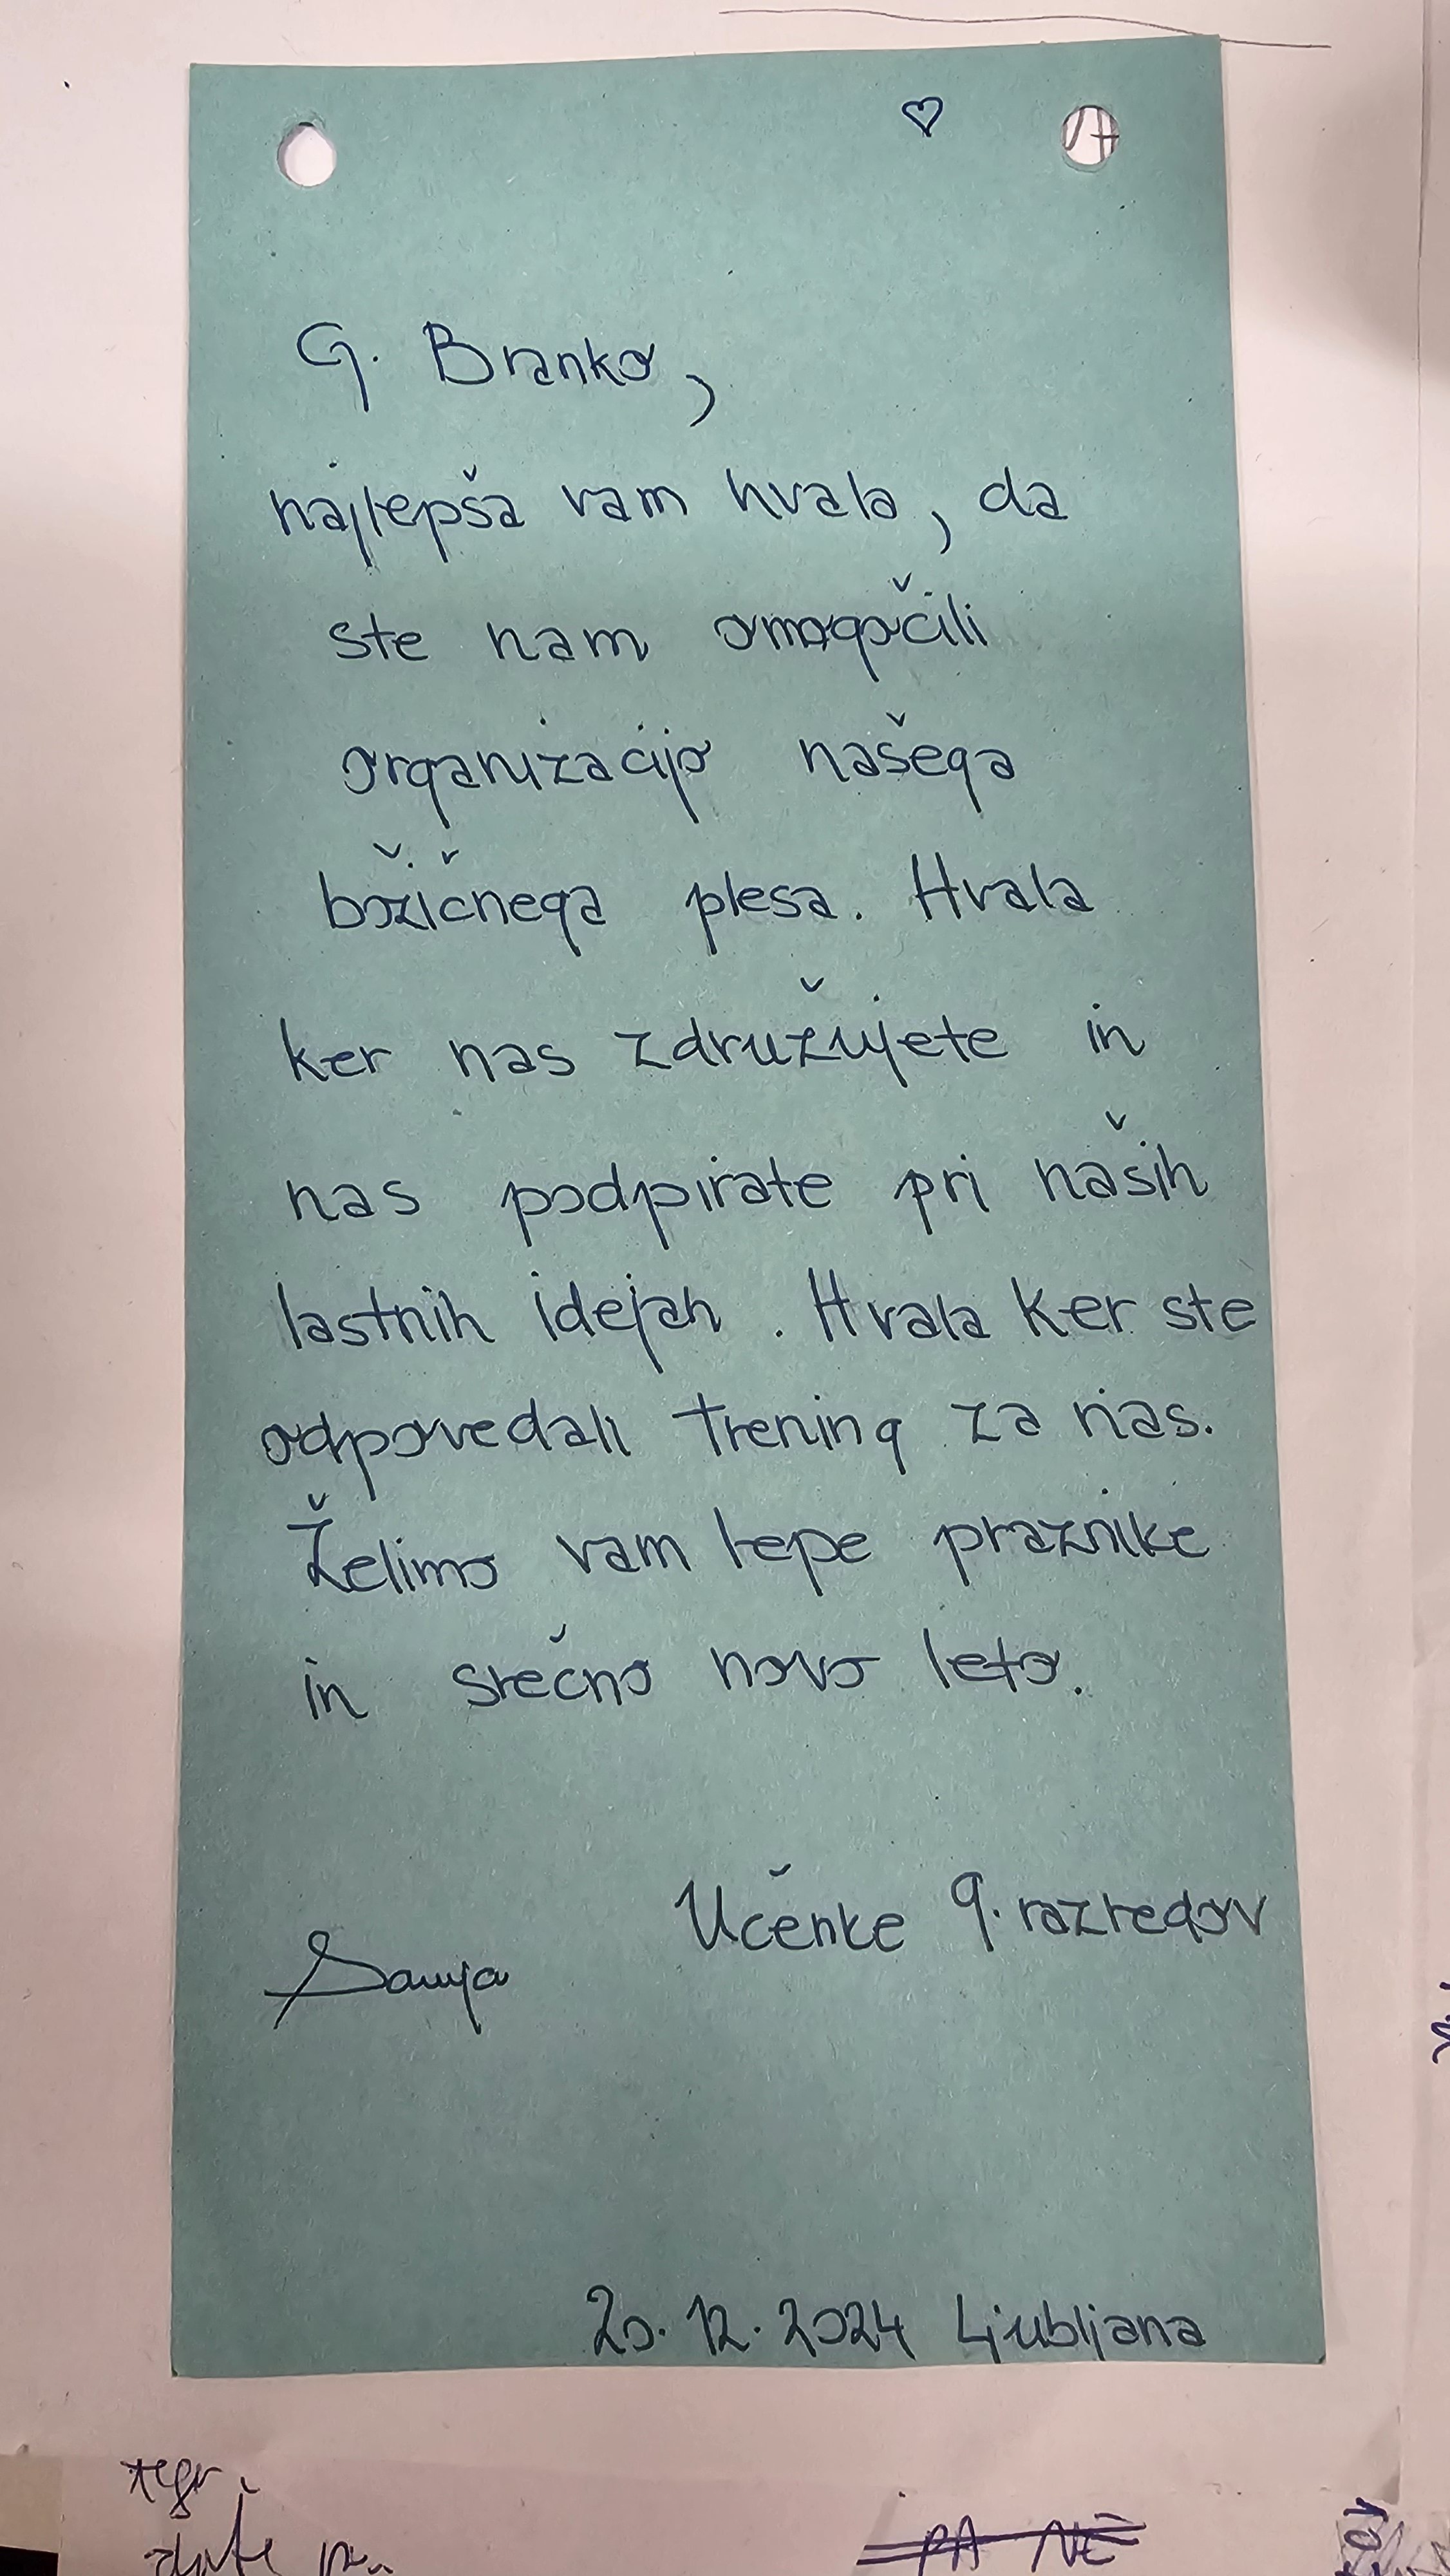 G. Branko,
najlepša vam hvala, da
ste nam omogočili
organizacijo našega
božičnega plesa. Hvala
ker nas združujete in
nas podpirate pri naših
lastnih idejah. Hvala ker ste
odpovedali trening za nas.
Želimo vam lepe praznike
in srečno novo leto.
Učenke 9. razredov
20.12.2024 Ljubljana
PA NE